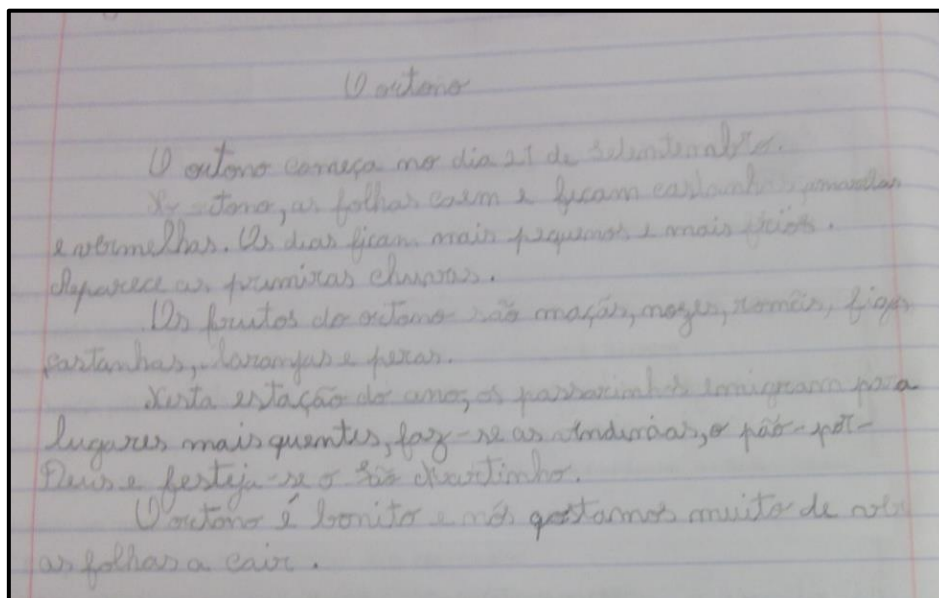 O outono
O outono começa no dia 21 de
No outono, as folhas caem e ficam castanhas, amarelas
e vermelhas. Os dias ficam mais pequenos e mais frios.
Aparece as primiras chuvas.
Os frutos do outono são maçãs, nozes, romãs, figos,
castanhas, laranjas e peras.
Nesta estação do ano, os passarinhos emigram para
lugares mais quentes, faz-se as vindimas, o pão-por-
Deus e festeja-se o São Martinho.
O outono é bonito e nós gostamos muito de ver
as folhas a cair.